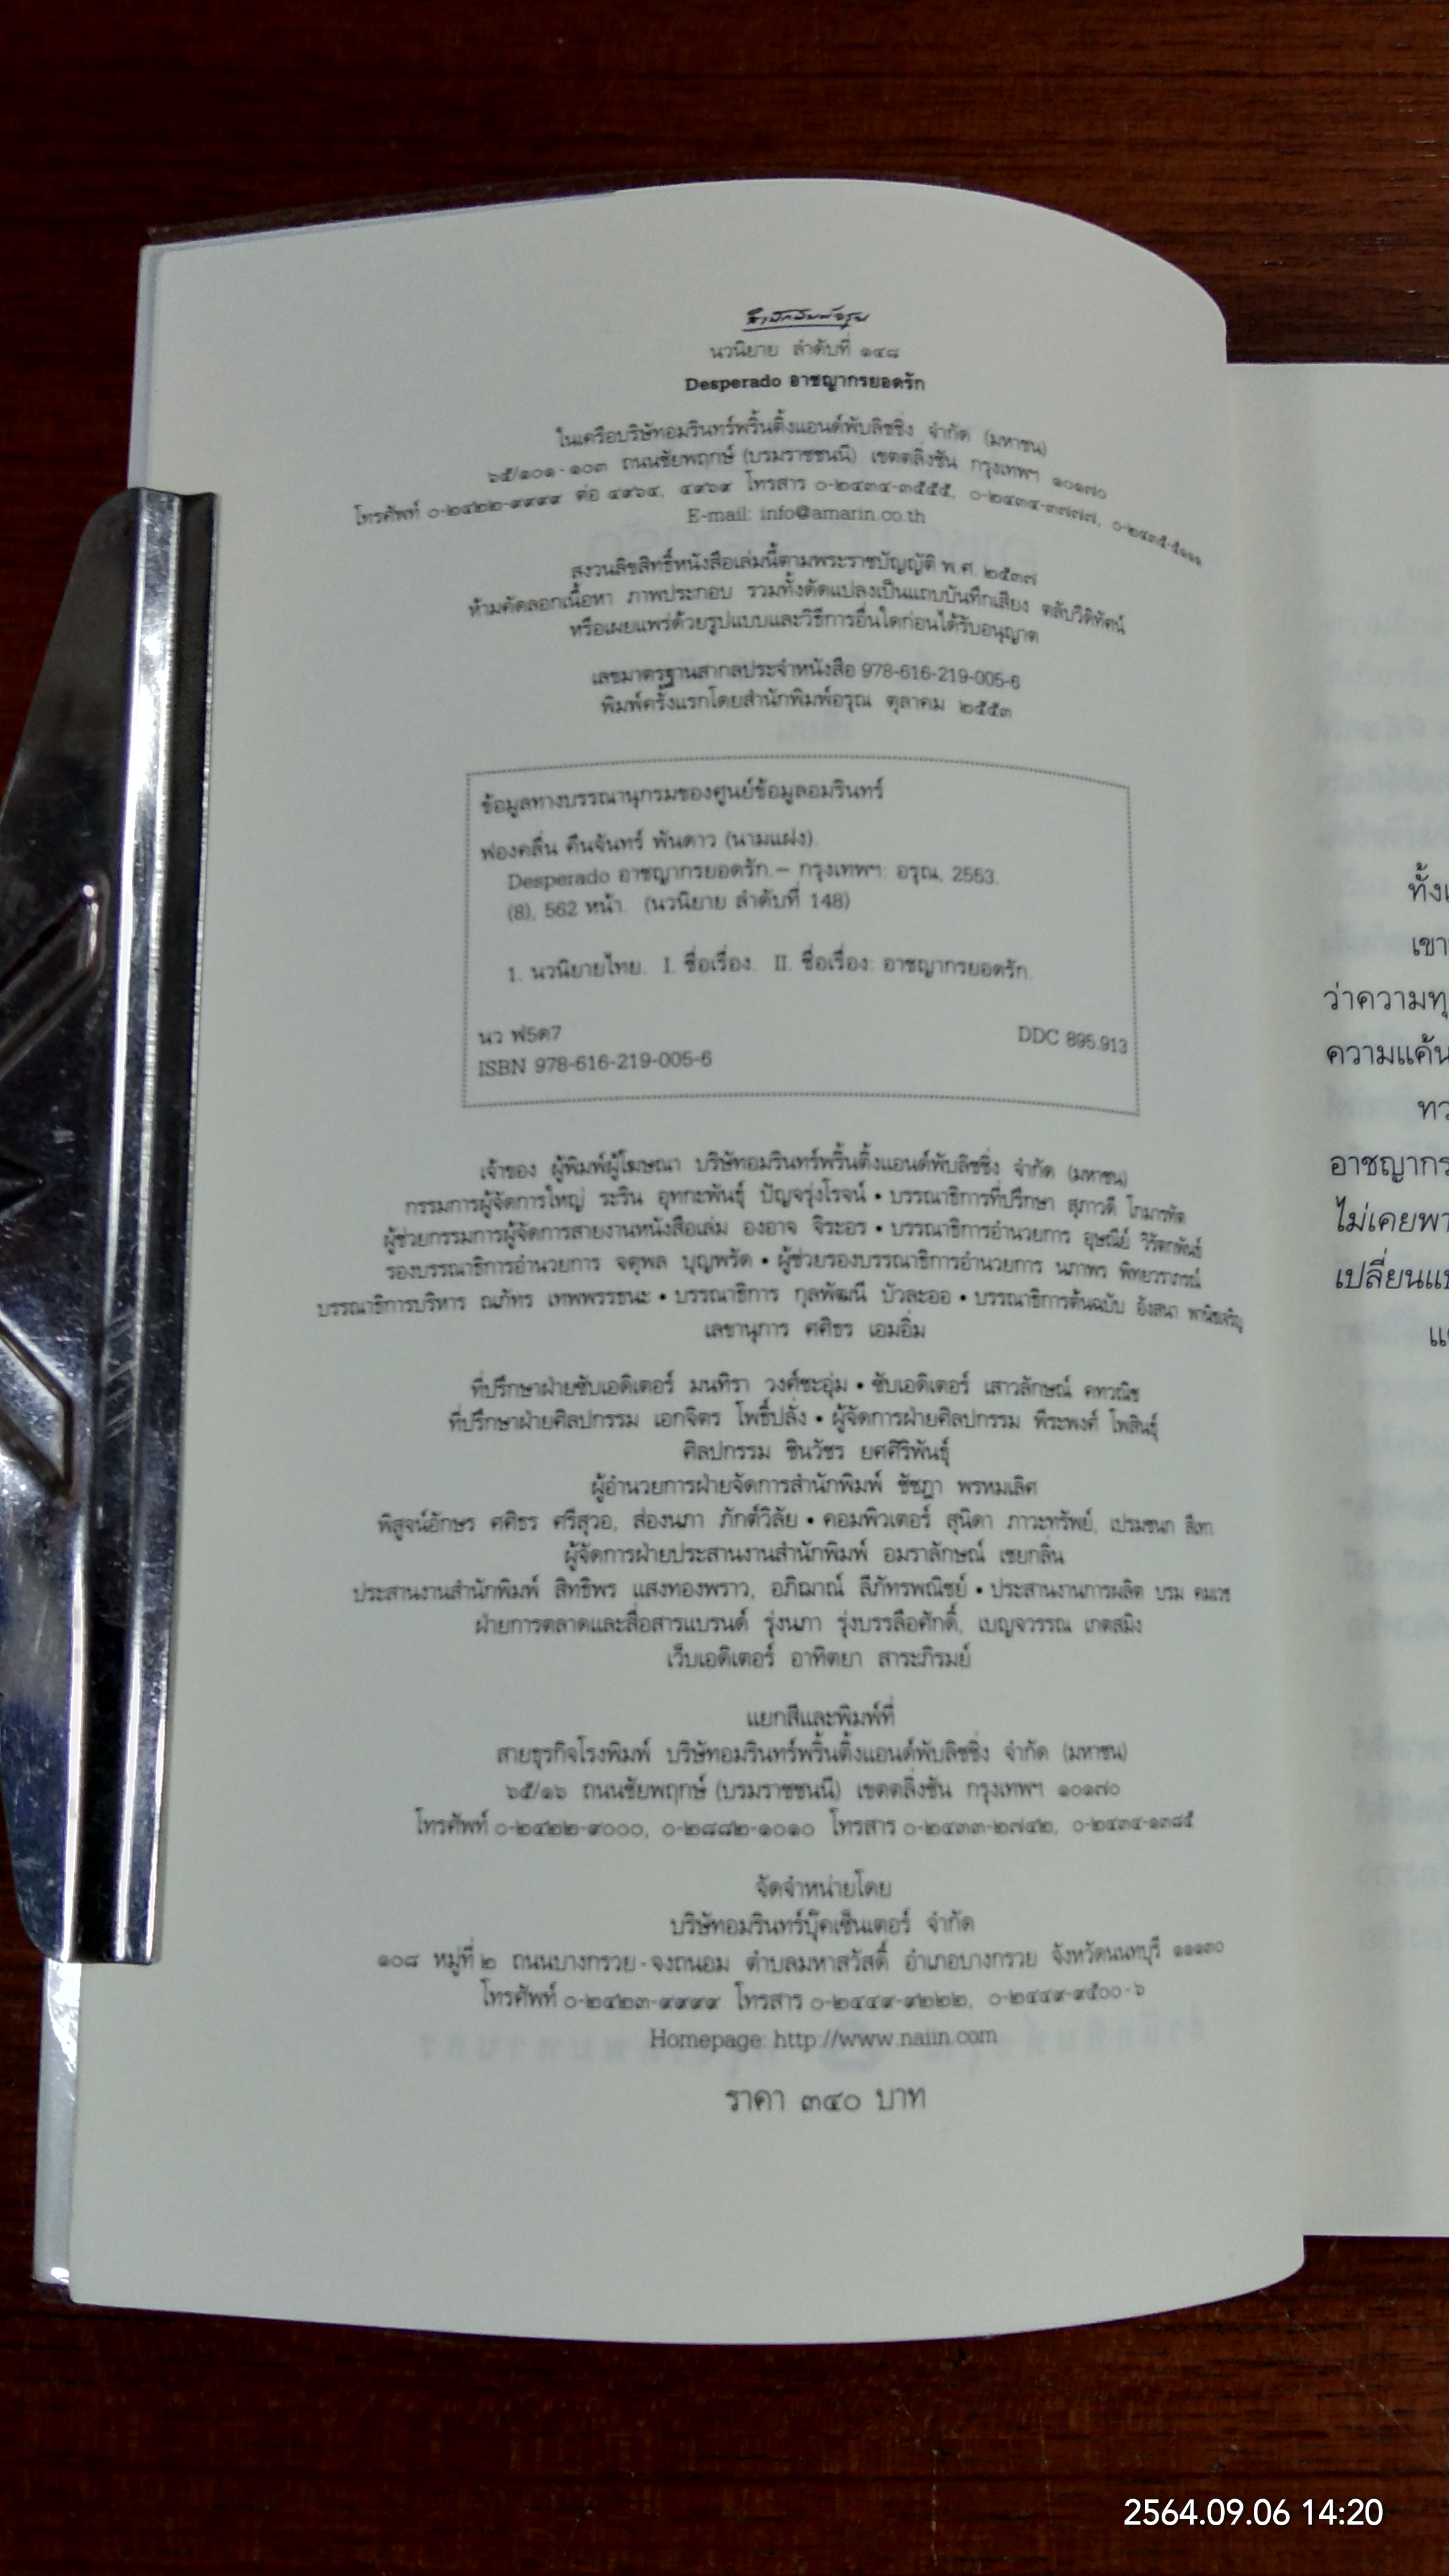 สำนักพิมพ์อรุณ
นวนิยาย ลำดับที่ ๑๔๘
Desperado อาชญากรยอดรัก
ในเครือบริษัทอมรินทร์พริ้นติ้งแอนด์พับลิชชิ่ง จำกัด (มหาชน)
๖๕/๑๐๑-๑๐๓ ถนนชัยพฤกษ์ (บรมราชชนนี) เขตตลิ่งชัน กรุงเทพฯ ๑๐๑๗๐
โทรศัพท์ ๐-๒๔๒๒-๙๙๙๙ ต่อ ๔๙๖๔, ๔๙๖๙ โทรสาร ๐-๒๔๓๔-๓๕๕๕, ๐-๒๔๓๔-๓๗๗๗, ๐-๒๔๓๕-๕๑๑๑
E-mail: info@amarin.co.th
สงวนลิขสิทธิ์หนังสือเล่มนี้ตามพระราชบัญญัติ พ.ศ. ๒๕๓๗
ห้ามคัดลอกเนื้อหา ภาพประกอบ รวมทั้งดัดแปลงเป็นแถบบันทึกเสียง ตลับวีดิทัศน์
หรือเผยแพร่ด้วยรูปแบบและวิธีการอื่นใดก่อนได้รับอนุญาต
เลขมาตรฐานสากลประจำหนังสือ 978-616-219-005-6
พิมพ์ครั้งแรกโดยสำนักพิมพ์อรุณ ตุลาคม ๒๕๕๓
ข้อมูลทางบรรณานุกรมของศูนย์ข้อมูลอมรินทร์
ฟองคลื่น คืนจันทร์ พันดาว (นามแฝง).
Desperado อาชญากรยอดรัก.– กรุงเทพฯ: อรุณ, 2553.
(8), 562 หน้า. (นวนิยาย ลำดับที่ 148)
1. นวนิยายไทย. I. ชื่อเรื่อง. II. ชื่อเรื่อง: อาชญากรยอดรัก.
นว ฟ5ด7
DDC 895.913
ISBN 978-616-219-005-6
เจ้าของ ผู้พิมพ์ผู้โฆษณา บริษัทอมรินทร์พริ้นติ้งแอนด์พับลิชชิ่ง จำกัด (มหาชน)
กรรมการผู้จัดการใหญ่ ระริน อุทกะพันธุ์ ปัญจรุ่งโรจน์ • บรรณาธิการที่ปรึกษา สุภาวดี โกมารทัต
ผู้ช่วยกรรมการผู้จัดการสายงานหนังสือเล่ม องอาจ จิระอร • บรรณาธิการอำนวยการ อุษณีย์ วิรัตกพันธ์
รองบรรณาธิการอำนวยการ จตุพล บุญพรัด • ผู้ช่วยรองบรรณาธิการอำนวยการ นภาพร พิทยาวราภรณ์
บรรณาธิการบริหาร ณภัทร เทพพรรธนะ • บรรณาธิการ กุลพัฒนี บัวละออ • บรรณาธิการต้นฉบับ อังสนา พานิชเจริญ
เลขานุการ ศศิธร เอมอิ่ม
ที่ปรึกษาฝ่ายซับเอดิเตอร์ มนทิรา วงศ์ชะอุ่ม • ซับเอดิเตอร์ เสาวลักษณ์ คทวณิช
ที่ปรึกษาฝ่ายศิลปกรรม เอกจิตร โพธิ์ปลั่ง • ผู้จัดการฝ่ายศิลปกรรม พีระพงศ์ โพสินธุ์
ศิลปกรรม ชินวัชร ยศศิริพันธุ์
ผู้อำนวยการฝ่ายจัดการสำนักพิมพ์ ชัชฎา พรหมเลิศ
พิสูจน์อักษร ศศิธร ศรีสุวอ, ส่องนภา ภักดิ์วิลัย • คอมพิวเตอร์ สุนิดา ภาวะทรัพย์, เปรมชนก สีเทา
ผู้จัดการฝ่ายประสานงานสำนักพิมพ์ อมราลักษณ์ เชยกลิ่น
ประสานงานสำนักพิมพ์ สิทธิพร แสงทองพราว, อภิฌาณ์ ลีภัทรพณิชย์ • ประสานงานการผลิต บรม คมเวช
ฝ่ายการตลาดและสื่อสารแบรนด์ รุ่งนภา รุ่งบรรลือศักดิ์, เบญจวรรณ เกตสมิง
เว็บเอดิเตอร์ อาทิตยา สาระภิรมย์
แยกสีและพิมพ์ที่
สายธุรกิจโรงพิมพ์ บริษัทอมรินทร์พริ้นติ้งแอนด์พับลิชชิ่ง จำกัด (มหาชน)
๖๕/๑๖ ถนนชัยพฤกษ์ (บรมราชชนนี) เขตตลิ่งชัน กรุงเทพฯ ๑๐๑๗๐
โทรศัพท์ ๐-๒๔๒๒-๙๐๐๐, ๐-๒๘๘๒-๑๐๑๐ โทรสาร ๐-๒๔๓๓-๒๗๔๒, ๐-๒๔๓๔-๑๓๘๕
จัดจำหน่ายโดย
บริษัทอมรินทร์บุ๊คเซ็นเตอร์ จำกัด
๑๐๘ หมู่ที่ ๒ ถนนบางกรวย-จงถนอม ตำบลมหาสวัสดิ์ อำเภอบางกรวย จังหวัดนนทบุรี ๑๑๑๓๐
โทรศัพท์ ๐-๒๔๒๓-๙๙๙๙ โทรสาร ๐-๒๔๔๙-๙๒๒๒, ๐-๒๔๔๙-๙๕๐๐-๖
Homepage: http://www.naiin.com
ราคา ๓๔๐ บาท
ทั้งเ
เขา
ว่าความทุ
ความแค้น
ทว
อาชญากร
ไม่เคยพา
เปลี่ยนแป
แ
2564.09.06 14:20